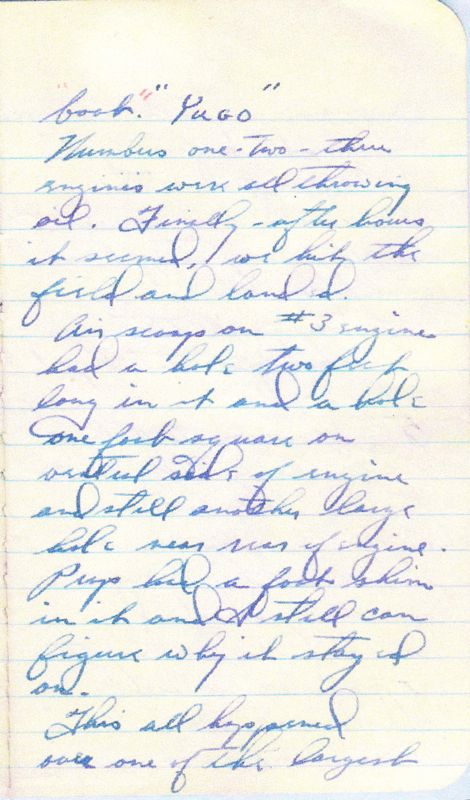 book." "Yugo"
Numbers one-two-three
engines were all throwing
oil. Finally - after hours
it seemed, we hit the
field and landed.
Air scoop on #3 engine
had a hole two feet
long in it and a hole
one foot square on
ventral side of engine
and still another large
hole near rear of engine.
Prop had a foot
in it and I still can
figure why it stayed
on.
This all happened
over one of the largest